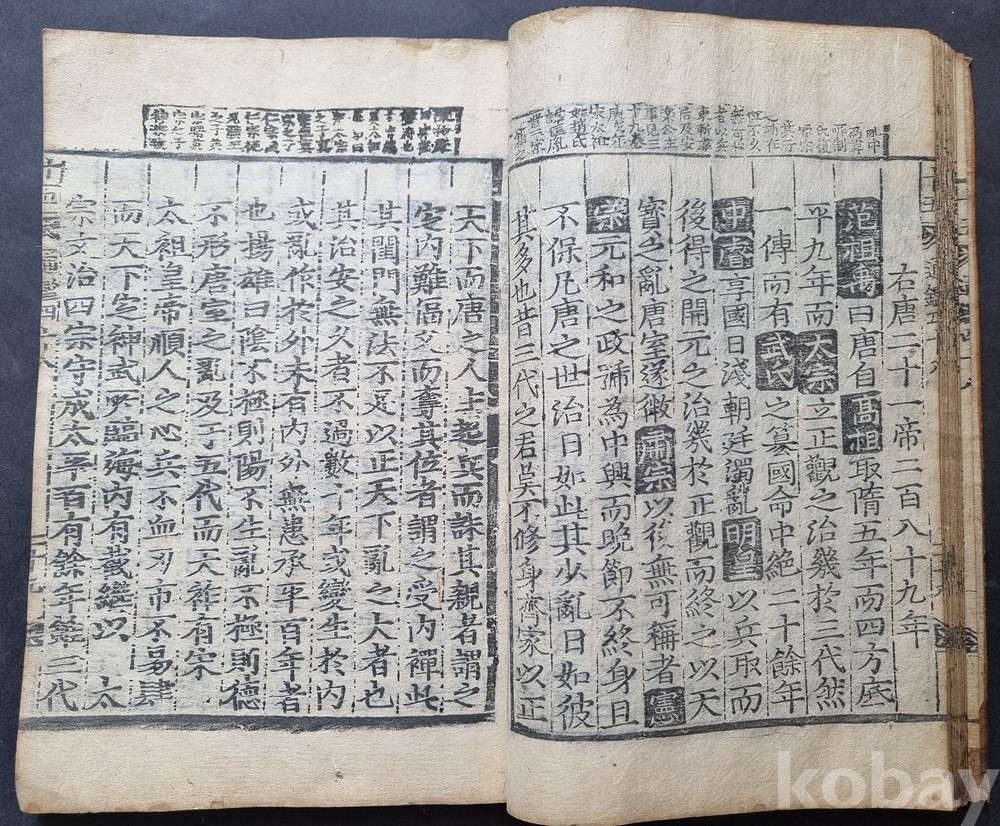 右唐二十一帝二百八十九年
范祖禹曰唐自高祖取隋五年而四方底
平九年而太宗立正觀之治幾於三代然
一傳而有武氏之篡國命中絶二十餘年
中睿享國日淺朝廷濁亂明皇以兵取而
後得之開元之治幾於正觀而終之以天
寶之亂唐室遂微肅宗以後無可稱者憲
宗元和之政號為中興而晚節不終身且
不保凡唐之世治日如此其少亂日如彼
其多也昔三代之君莫不修身齊家以正
天下而唐之人主起兵而誅其親者謂之
定內難偪父而奪其位者謂之受內禪此
其閨門無法不足以正天下亂之大者也
其治安之久者不過數十年或變生於內
或亂作於外未有內外無患承平百年者
也揚雄曰陰不極則陽不生亂不極則德
不形唐室之亂及于五代而天祚有宋
太祖皇帝順人之心兵不血刃市不易肆
而天下定神武所臨海內有截繼以 太
宗文治四宗守成太平百有餘年鑒三代
kobay